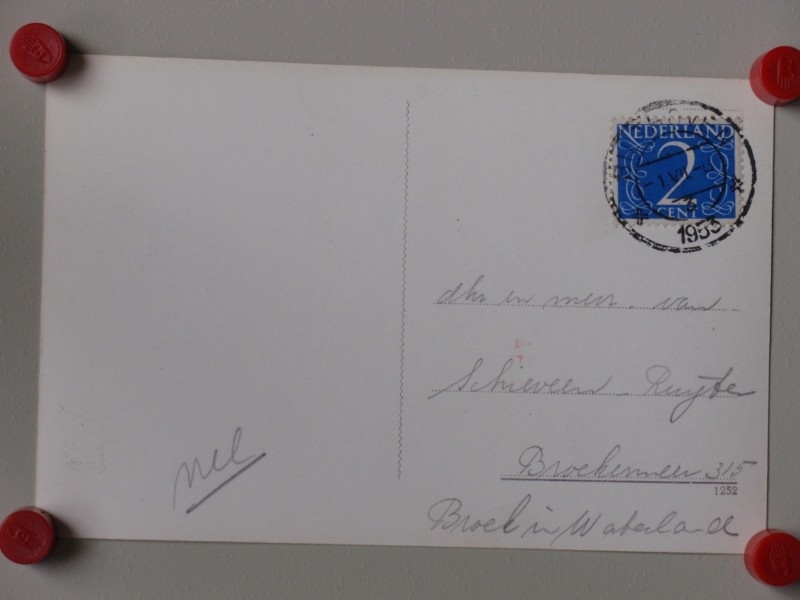 NEDERLAND
2
CENT
1953
dhr en mevr. van
Schieveen Ruyter
Broekermeer 315
1252
Broek in Waterland
nel